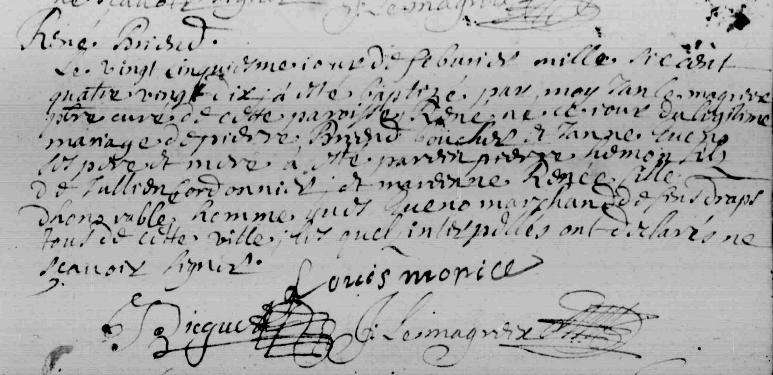 René Briend.
Le vingt cinquiesme jour de febvrier mille six cent
quatre vingt dix a esté baptizé par moy Jan le magneux
ptre curé de cette paroisse René ne ce jour du legitime
mariage de pierre Briend boucher et Janne
ses pere et mere a esté parrein pierre hemon fils
de Jullien Cordonnier et marenne Renée fille
dhonorable homme Queno marchand de fins draps
tous de cette ville, les quel interpellés ont declarés ne
sçavoir signer.
Louis monice
J: Lemagneux